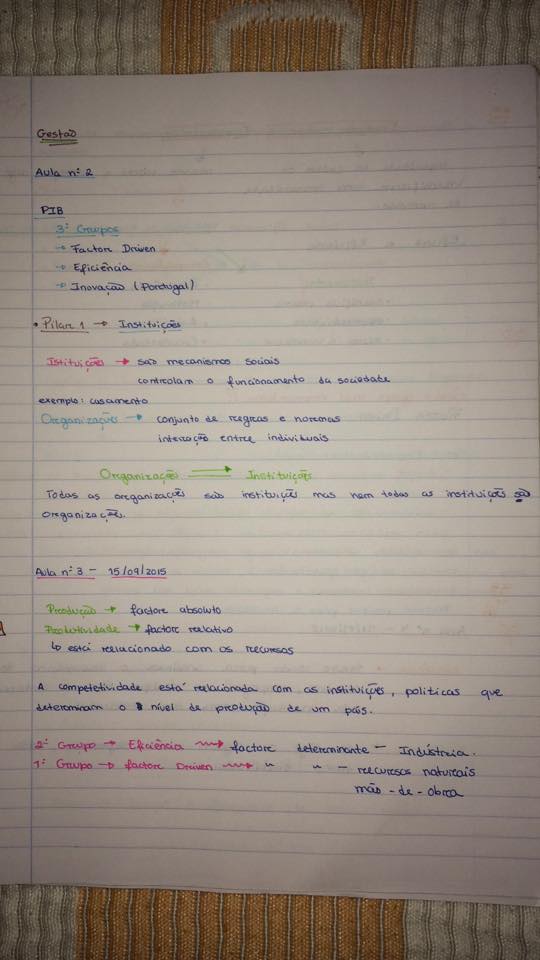 Gestão
Aula nº 2
PIB
3º Grupos
→ Factor Driven
→ Eficiência
→ Inovação (Portugal)
• Pilar 1 → Instituições
Istituições → são mecanismos sociais
controlam o funcionamento da sociedade
exemplo: casamento
Organizações → conjunto de regras e normas
interação entre individuais
Organização → Instituições
Todas as organizações são instituição mas nem todas as instituições são
organizações.
Aula nº 3 - 15/09/2015
Produção → factor absoluto
Produtividade → factor relativo
↳ está relacionado com os recursos
A competetividade está relacionada com as instituições, políticas que
determinam o nível de produção de um país.
2º Grupo → Eficiência → factor determinante - Indústria.
1º Grupo → factor Driven → " " - recursos naturais
mão-de-obra